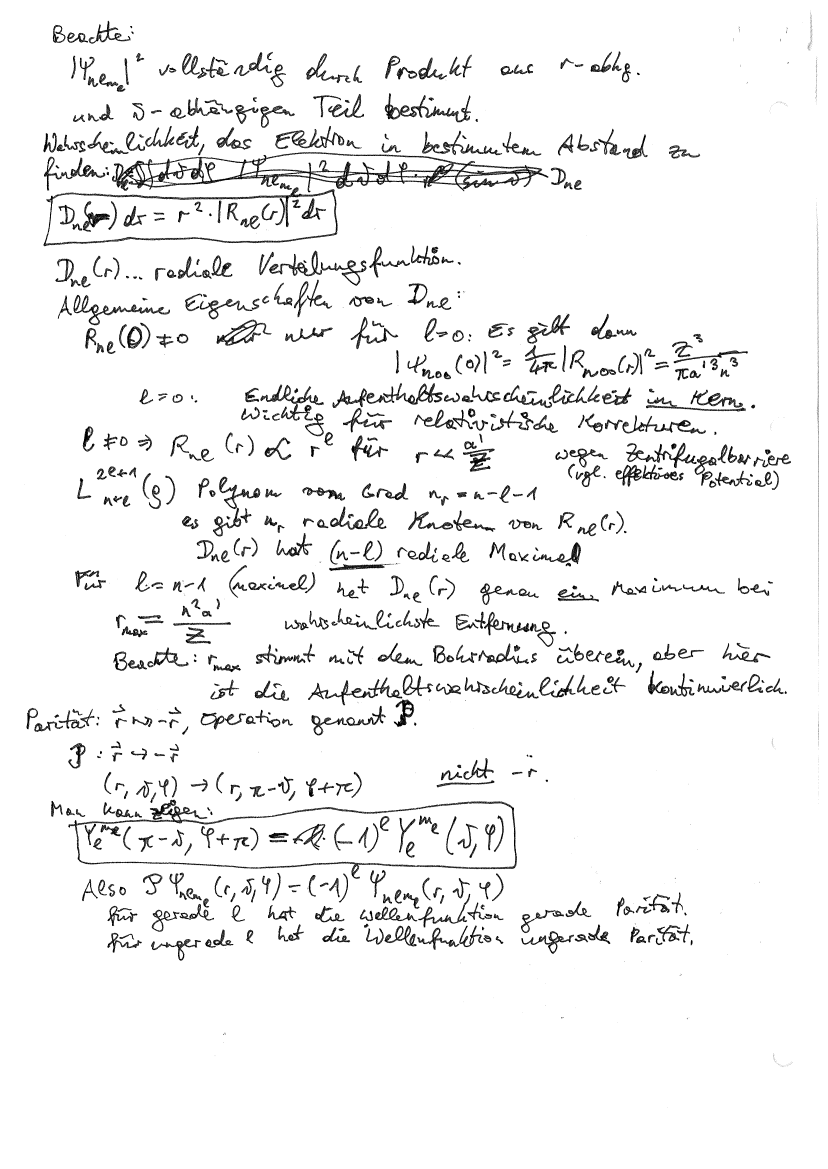 Beachte:
|Ψnlml|² vollständig durch Produkt aus r-abhg.
und ϑ-abhängigen Teil bestimmt.
Wahrscheinlichkeit, das Elektron in bestimmtem Abstand zu
finden: Dnl
Dnl(r) dr = r² · |Rnl(r)|² dr
Dnl(r)... radiale Verteilungsfunktion.
Allgemeine Eigenschaften von Dnl:
Rnl(0) ≠ 0 nur für l=0: Es gilt dann
|Ψn00(0)|² = 1/4π |Rn00(r)|² = Z³/πa'³n³
l=0: Endliche Aufenthaltswahrscheinlichkeit im Kern.
Wichtig für relativistische Korrekturen.
l≠0 ⇒ Rnl(r) ∝ r^l für r ≪ a'/Z wegen Zentrifugalbarriere
(vgl. effektives Potential)
L^{2l+1}_{n+l}(ρ) Polynom vom Grad nr = n-l-1
es gibt nr radiale Knoten von Rnl(r).
Dnl(r) hat (n-l) radiale Maxima
Für l=n-1 (maximal) hat Dnl(r) genau ein Maximum bei
rmax = n²a'/Z wahrscheinlichste Entfernung.
Beachte: rmax stimmt mit dem Bohrradius überein, aber hier
ist die Aufenthaltswahrscheinlichkeit kontinuierlich.
Parität: r⃗ → -r⃗, Operation genannt P.
P : r⃗ → -r⃗
(r, ϑ, φ) → (r, π-ϑ, φ+π) nicht -r.
Man kann zeigen:
Yl^ml(π-ϑ, φ+π) = (-1)^l Yl^ml(ϑ, φ)
Also P Ψnlml(r, ϑ, φ) = (-1)^l Ψnlml(r, ϑ, φ)
für gerade l hat die Wellenfunktion gerade Parität.
für ungerade l hat die Wellenfunktion ungerade Parität.